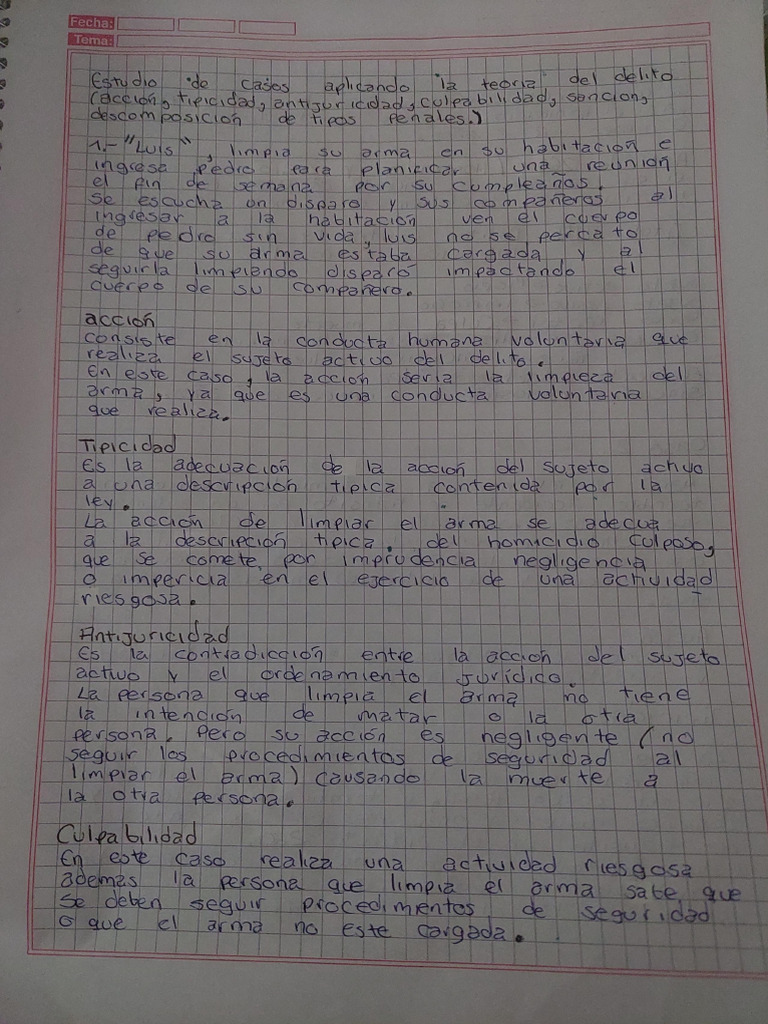 Fecha:
Tema:
Estudio de casos aplicando la teoria del delito
(acción, tipicidad, antijuricidad, culpabilidad, sancion,
descomposición de tipos penales.)
1.- "Luis", limpia su arma en su habitación e
ingresa Pedro para planificar una reunión
el fin de semana por su cumpleaños.
se escucha un disparo y sus compañeros al
ingresar a la habitación ven el cuerpo
de pedro sin vida, luis no se percato
de que su arma estaba cargada y al
seguirla limpiando disparó impactando el
cuerpo de su compañero.
acción
consiste en la conducta humana voluntaria que
realiza el sujeto activo del delito.
En este caso, la acción seria la limpieza del
arma, ya que es una conducta voluntaria
que realiza.
Tipicidad
Es la adecuación de la acción del sujeto activo
a una descripción tipica contenida por la
ley.
La acción de limpiar el arma se adecua
a la descripción tipica. del homicidio culposo,
que se comete por imprudencia negligencia
o impericia en el ejercicio de una actividad
riesgosa.
Antijuricidad
Es la contradicción entre la acción del sujeto
activo y el ordenamiento jurídico.
La persona que limpia el arma no tiene
la intención de matar o la otra
persona, pero su acción es negligente (no
seguir los procedimientos de seguridad al
limpiar el arma) causando la muerte a
la otra persona.
Culpabilidad
En este caso realiza una actividad riesgosa
ademas la persona que limpia el arma sabe que
se deben seguir procedimientos de seguridad
o que el arma no este cargada.